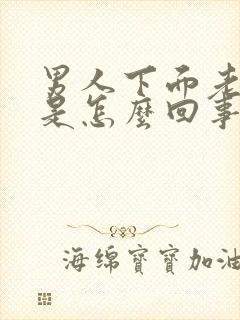 男人下面老
是怎麼回事
海绵寶寶加油